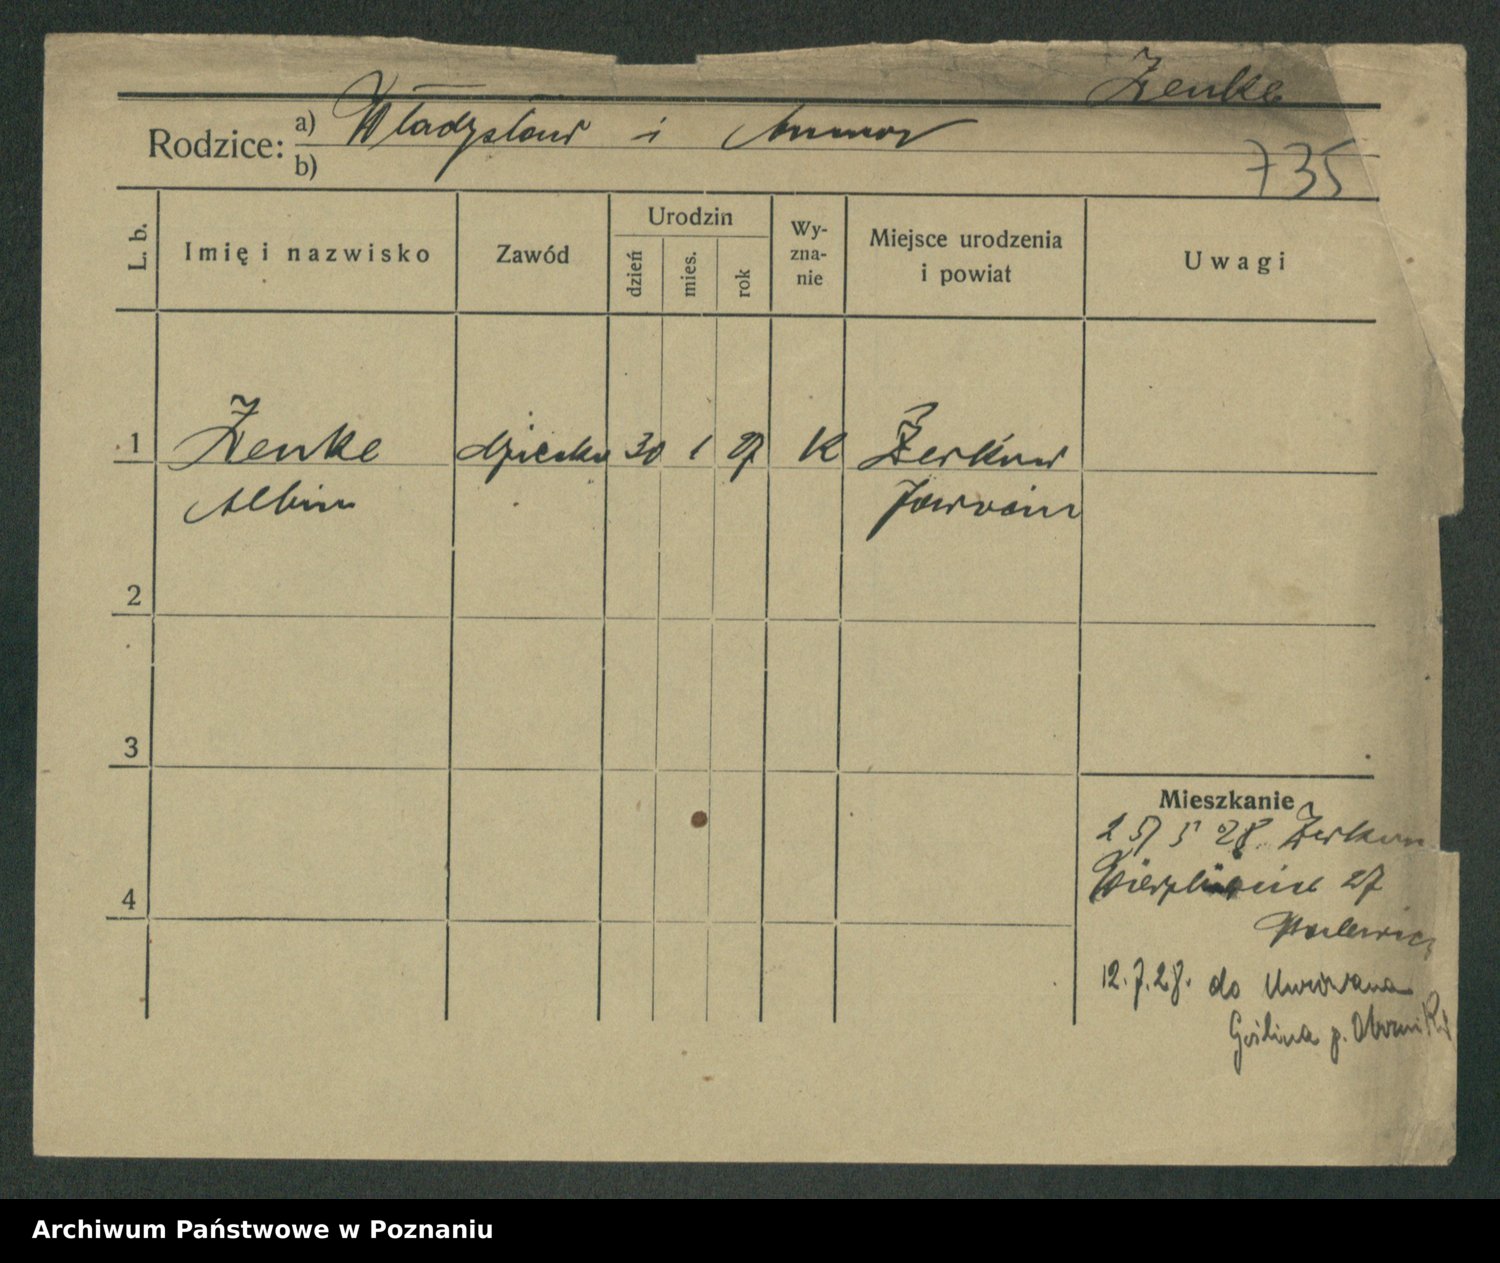 Zenke
Rodzice: a) Władysław i Anna
b)
735
L. b.
Imię i nazwisko
Zawód
Urodzin
dzień
mies.
rok
Wy-
zna-
nie
Miejsce urodzenia
i powiat
Uwagi
1 Zenke dziecko 30 1 27 K Żerków
Albin Jarocin
2
3
Mieszkanie
25 28 Żerków
4
27
12.7.28. do Murowana
Goślina p. Oborniki
Archiwum Państwowe w Poznaniu